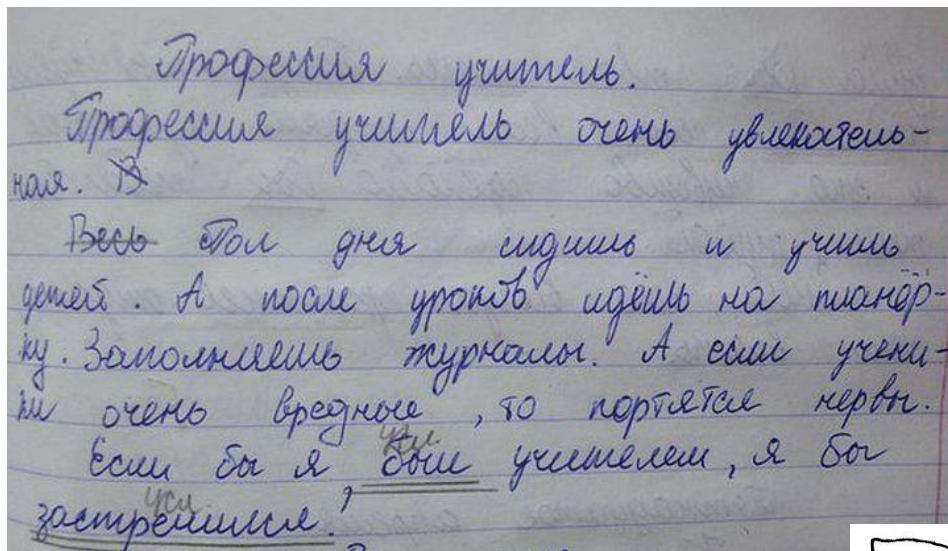 Профессия учитель.
Профессия учитель очень увлекатель-
ная. В
Весь Пол дня сидишь и учишь
детей. А после уроков идёшь на планёр-
ку. Заполняешь журналы. А если учени-
ки очень вредные, то портятся нервы.
усл.
Если бы я, был учителем, я бы
усл.
застрелился.